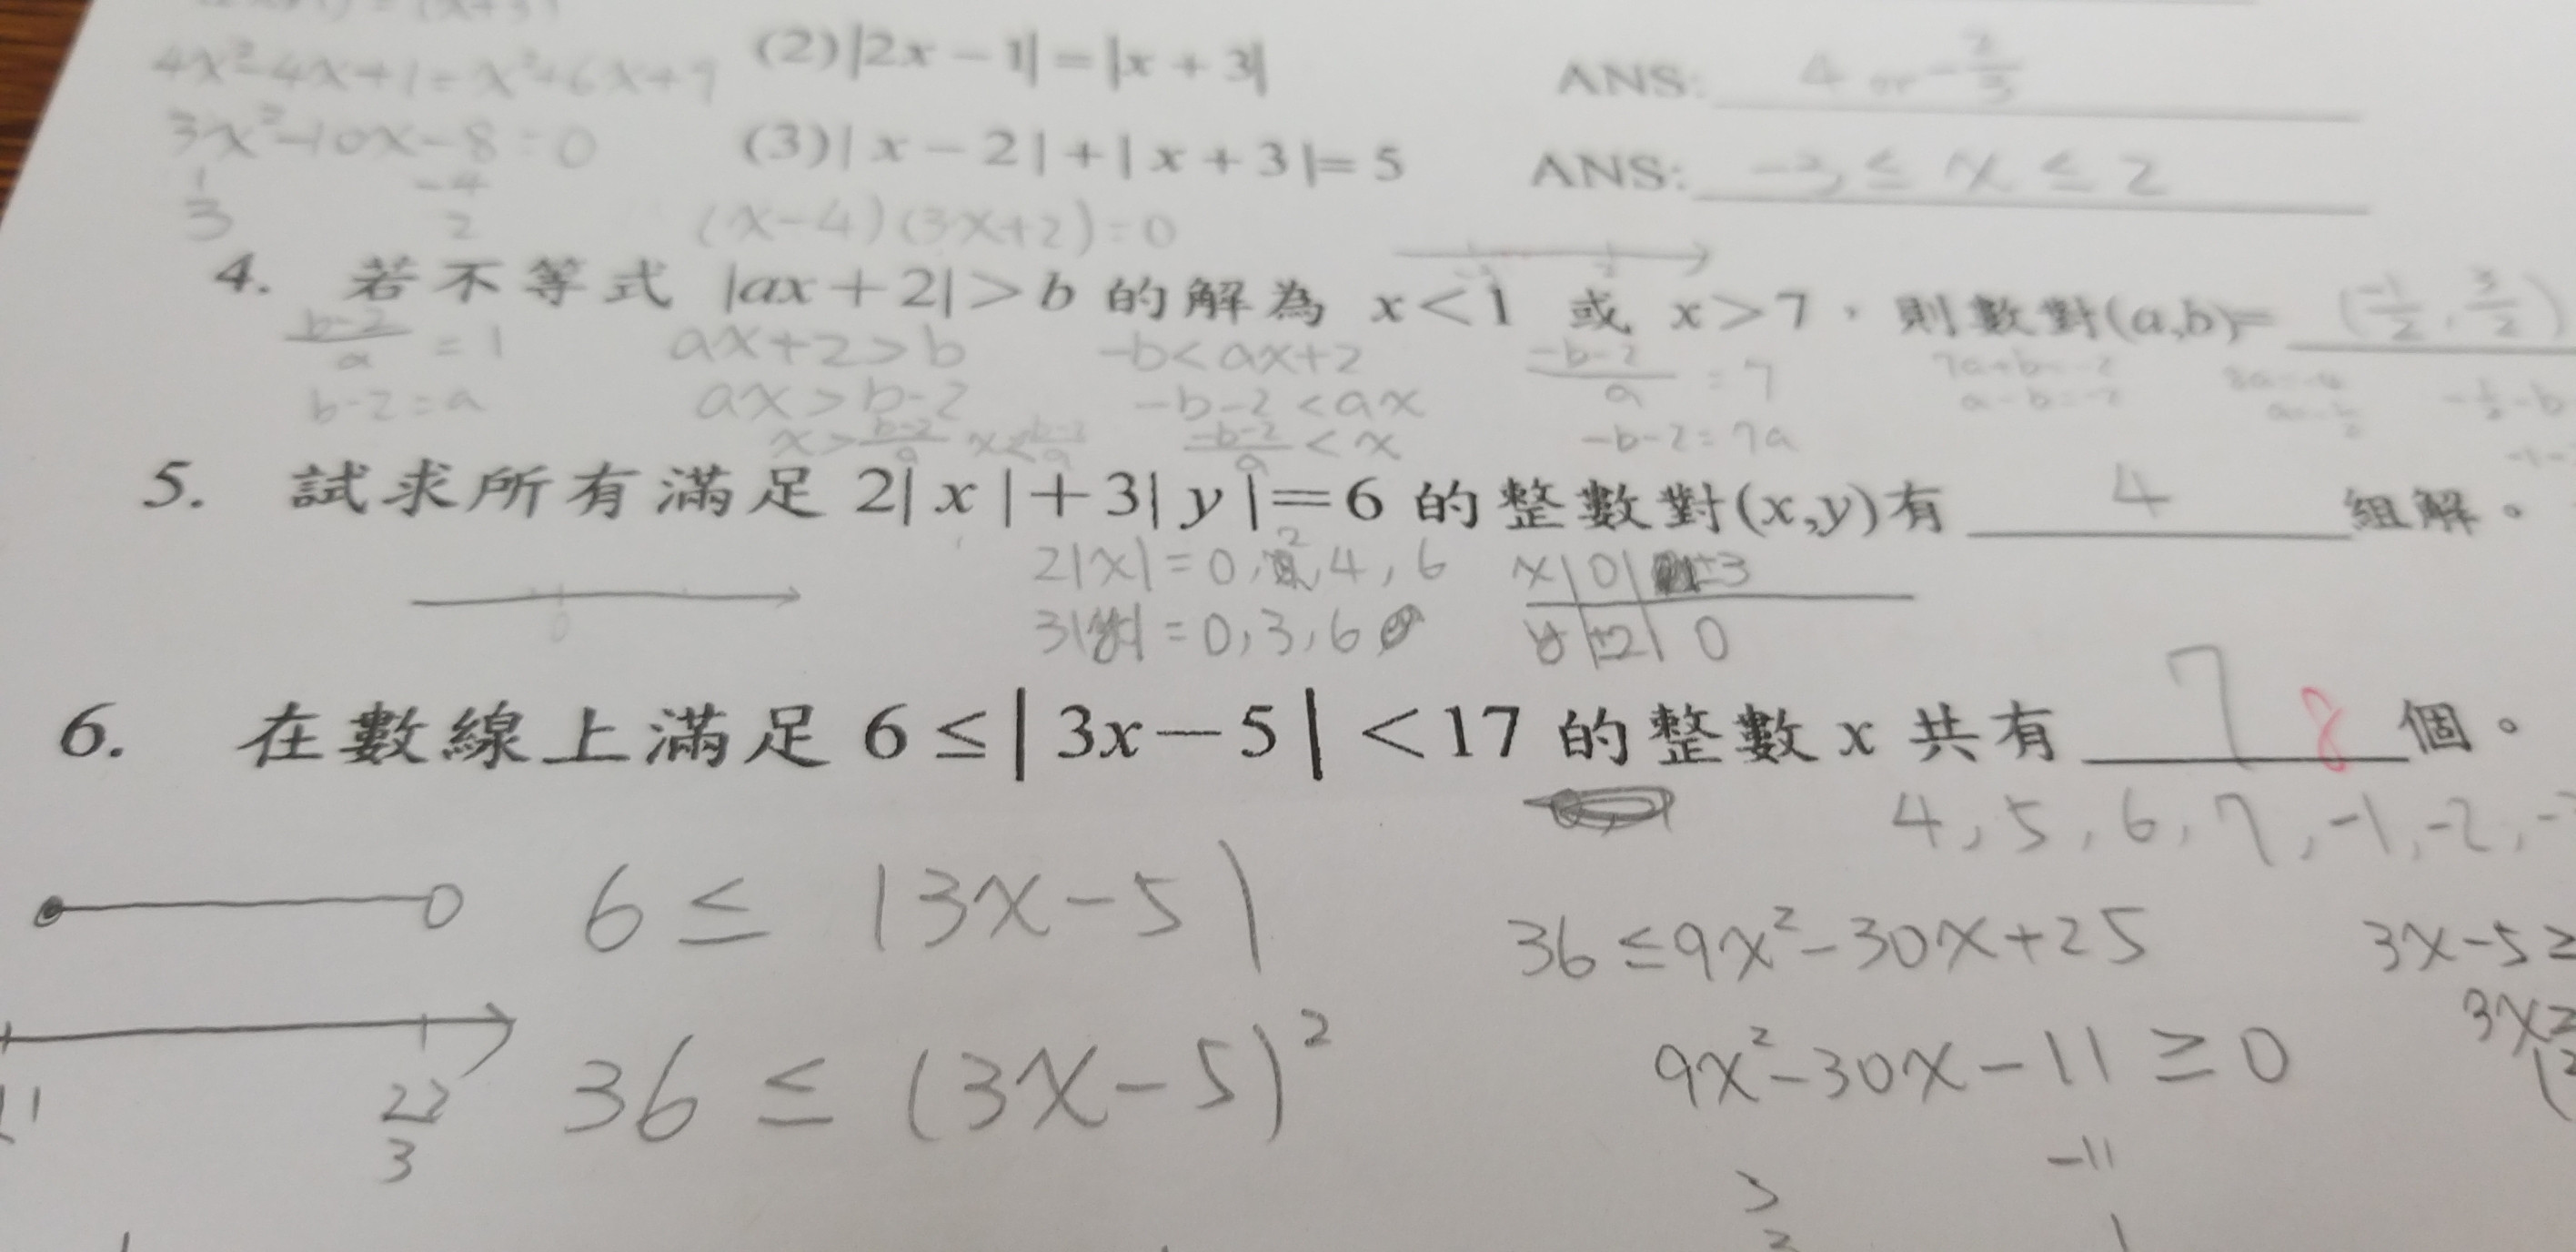 4x²-4x+1=x²+6x+9
(2)|2x-1|=|x+3|
ANS: 4 or -2/3
3x²-10x-8=0
(3)|x-2|+|x+3|=5
ANS: -3≤x≤2
1 -4
3 2
(x-4)(3x+2)=0
4. 若不等式 |ax+2|>b 的解為 x<1 或 x>7,則數對(a,b)= (-1/2, 3/2)
(b-2)/a =1
ax+2>b
-b<ax+2
(-b-2)/a =7
7a+b=-2
8a=-4
b-2=a
ax>b-2
-b-2<ax
a-b=-2
x>(b-2)/a
(-b-2)/a<x
-b-2=7a
5. 試求所有滿足 2|x|+3|y|=6 的整數對(x,y)有 4 組解。
2|x|=0,2,4,6
x|0|±3
0
3|y|=0,3,6
y|±2|0
6. 在數線上滿足 6≤|3x-5|<17 的整數 x 共有 7 8 個。
4,5,6,7,-1,-2,
6≤|3x-5|
36≤9x²-30x+25
3x-5≥
36≤(3x-5)²
9x²-30x-11≥0
3x≥
22
3
-11
3
1